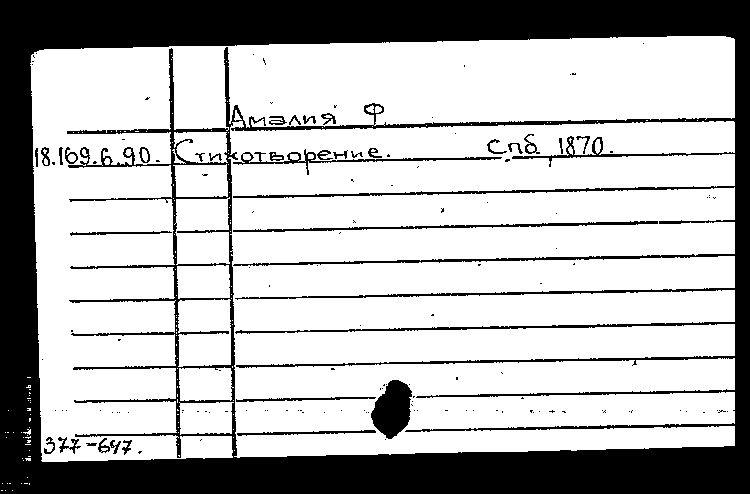 Амалия Ф
18.169.6.90. Стихотворение. Спб, 1870.
377-647.